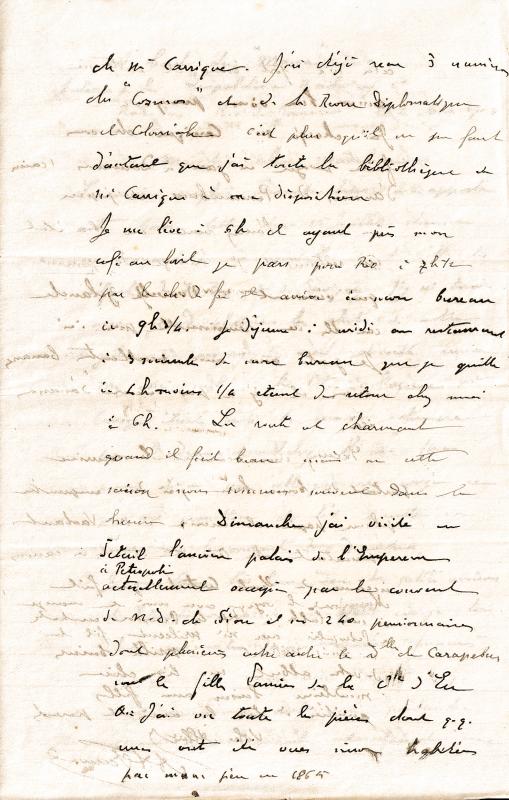 de Mr Carrique. J'ai déjà reçu 3 numéros
du "Cosmos" et de la Revue Diplomatique
et c'est plus qu'il ne me faut
d'autant que j'ai toute la bibliothèque de
Mr Carrique à ma disposition
Je me lève à 6h et ayant pris mon
café au lait je pars pour Rio à 7h 1/2
par le chemin de fer et arrive à mon bureau
à 9h 3/4. Je déjeune à midi au restaurant
à 3 minutes de mon bureau que je quitte
à 4h moins 1/4 étant de retour chez moi
à 6h. La route est charmante
quand il fait beau mais en cette
saison nous sommes souvent dans la
brume. Dimanche j'ai visité en
détail l'ancien palais de l'Empereur
à Petropolis
actuellement occupé par le couvent
de N.D. de Sion et ses 240 pensionnaires
dont plusieurs entre autre la de Carapebus
sont la fille de la Ctsse d'Eu
J'ai vu toute les pièces dont q.q.
unes ont été
par mon père en 1865